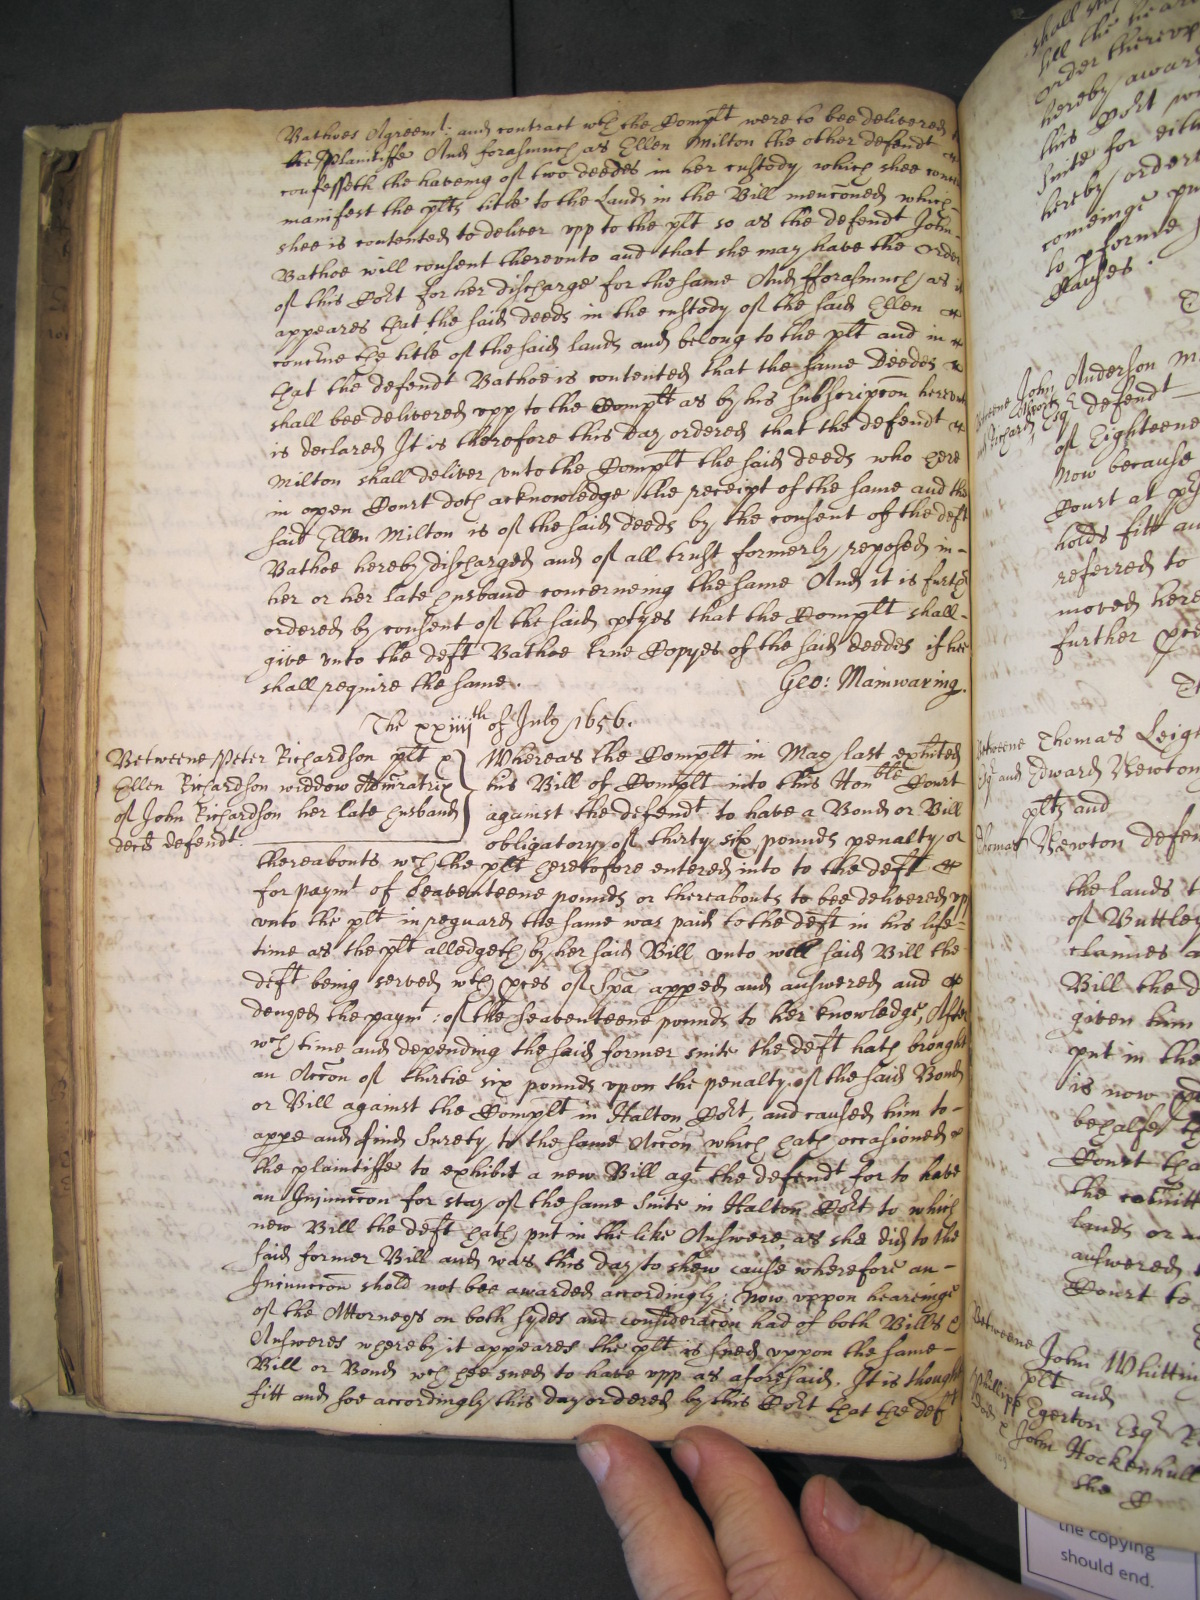 Bathoes Agreemt: and contract wch the Complt were to bee delivered
the Plaintiffe And forasmuch as Ellen Milton the other defendt
confesseth the haveing of two deedes in her custody which shee
manifest the plts title to the Lands in the Bill menconed which
shee is contented to deliver upp to the plt so as the defendt John
Bathoe will consent thereunto and that she may have the order
of this Cort for her discharge for the same And fforasmuch as it
appeares that the said deeds in the custody of the said Ellen
concerne the title of the said lands and belong to the plt and in
that the defendt Bathoe is contented that the same Deedes
shall bee delivered upp to the Complt as by his subscripcon hereunto
is declared It is therefore this day ordered that the defendt
Milton shall deliver unto the Complt the said deeds who here
in open Court doth acknowledge the receipt of the same and the
said Ellen Milton is of the said deeds by the consent of the deft
Bathoe hereby discharged and of all trust formerly reposed in
her or her late husband concerneing the same And it is furth
ordered by consent of the said ptyes that the Complt shall
give unto the deft Bathoe true Copyes of the said deedes if hee
shall require the same.
Geo: Mainwaring.
The xxiiijth of July 1656.
Betweene Peter Richardson plt
Ellen Richardson widdow Admratrix
of John Richardson her late husband
decd defendt.
Whereas the Complt in May last exhited
his Bill of Complt into this Honble Court
against the defendt to have a Bond or Bill
obligatory of thirty six pounds penalty or
thereabouts wch the plt heretofore entered into to the deft
for paymt of seaventeene pounds or thereabouts to bee delivered upp
unto the plt in reguard the same was paid to the deft in his life
time as the plt alledgeth by her said Bill unto wch said Bill the
deft being served wth pces of Spa apped and answered and
denyed the paymt: of the seaventeene pounds to her knowledge, After
wch time and depending the said former suite the deft hath brought
an Accon of thirtie six pounds upon the penalty of the said Bond
or Bill against the Complt in Halton Cort, and caused him to
appe and find Surety to the same Accon which hath occasioned
the plaintiffe to exhibit a new Bill agt the defendt for to have
an Injunccon for stay of the same Suite in Halton Cort to which
new Bill the deft hath put in the like Answere as she did to the
said former Bill and was this day to shew cause wherefore an
Injunccon shold not bee awarded accordingly: Now uppon heareinge
of the Attorneys on both sydes and consideracon had of both Bills &
Answeres whereby it appeares the plt is sued uppon the same
Bill or Bond wch hee sued to have upp as aforesaid. It is thought
fitt and soe accordingly this day ordered by this Cort that the deft
till the
order thereup
hereby award
this Cort
suite for
hereby order
to pforme
Clauses.
John Anderson
defendt
of Eighteene
Now because
Court at
holds fitt
referred to
moved here
further
Betweene Thomas Leigh
Esqr and Edward Newton
plts and
Thomas Newton defen
the lands
of Buttley
claimes
Bill the
given him
put in the
is now
behalfe
Court tha
the
lands or
answered
Court to
Betweene John Whittin
plt and
Phillipp Egerton Esqr
John Hockenhull
the
the copying
should end.